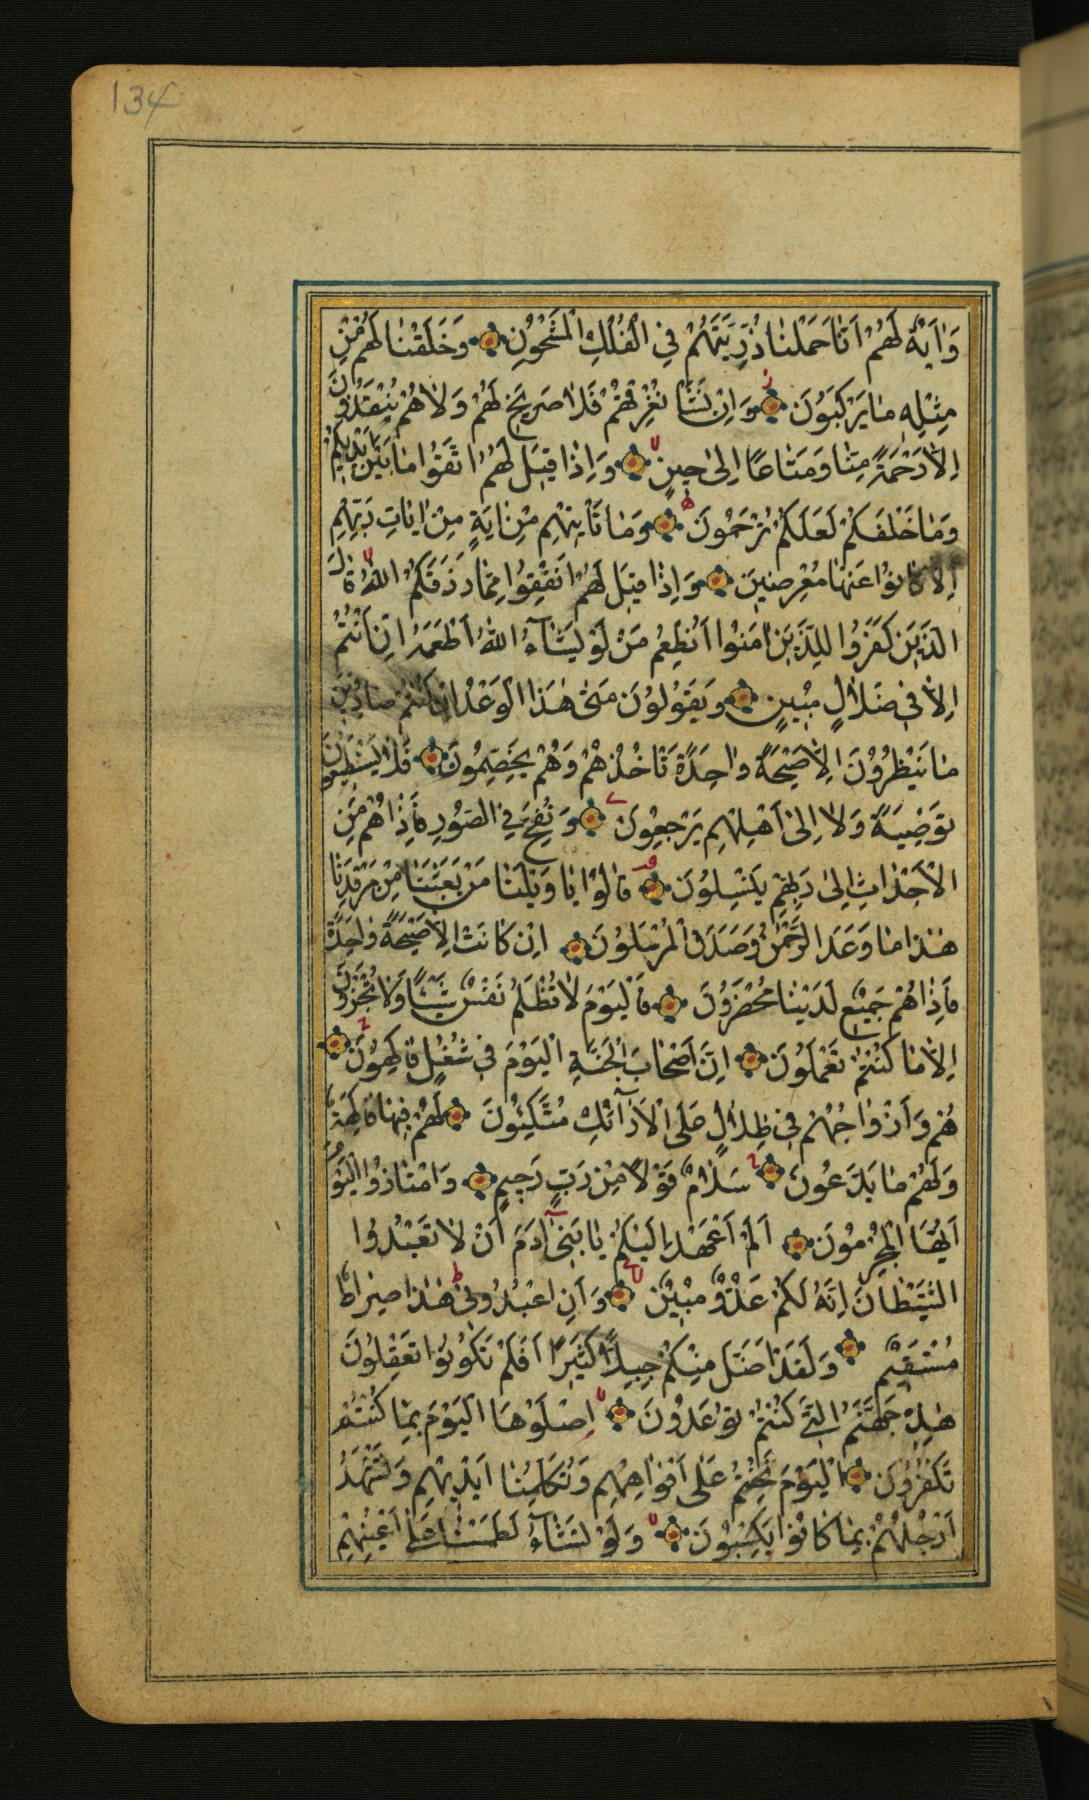 134
وَاٰيَةٌ لَهُمْ اَنّٰا حَمَلْنٰا ذُرِّيَّتَهُمْ فِي الْفُلْكِ الْمَشْحُونِ وَخَلَقْنٰا لَهُمْ مِنْ
مِثْلِهِ مٰا يَرْكَبُونَ وَاِنْ نَشَأْ نُغْرِقْهُمْ فَلٰا صَرِيخَ لَهُمْ وَلٰا هُمْ يُنْقَذُونَ
اِلّٰا رَحْمَةً مِنّٰا وَمَتٰاعًا اِلىٰ حِينٍ وَاِذٰا قِيلَ لَهُمُ اتَّقُوا مٰا بَيْنَ اَيْدِيكُمْ
وَمٰا خَلْفَكُمْ لَعَلَّكُمْ تُرْحَمُونَ وَمٰا تَأْتِيهِمْ مِنْ اٰيَةٍ مِنْ اٰيٰاتِ رَبِّهِمْ
اِلّٰا كٰانُوا عَنْهٰا مُعْرِضِينَ وَاِذٰا قِيلَ لَهُمْ اَنْفِقُوا مِمّٰا رَزَقَكُمُ اللّٰهُ قٰالَ
الَّذِينَ كَفَرُوا لِلَّذِينَ اٰمَنُوا اَنُطْعِمُ مَنْ لَوْ يَشٰآءُ اللّٰهُ اَطْعَمَهُ اِنْ اَنْتُمْ
اِلّٰا فِي ضَلٰالٍ مُبِينٍ وَيَقُولُونَ مَتىٰ هٰذَا الْوَعْدُ اِنْ كُنْتُمْ صٰادِقِينَ
مٰا يَنْظُرُونَ اِلّٰا صَيْحَةً وٰاحِدَةً تَأْخُذُهُمْ وَهُمْ يَخِصِّمُونَ فَلٰا يَسْتَطِيعُونَ
تَوْصِيَةً وَلٰا اِلىٰ اَهْلِهِمْ يَرْجِعُونَ وَنُفِخَ فِي الصُّورِ فَاِذٰا هُمْ مِنَ
الْاَجْدٰاثِ اِلىٰ رَبِّهِمْ يَنْسِلُونَ قٰالُوا يٰا وَيْلَنٰا مَنْ بَعَثَنٰا مِنْ مَرْقَدِنٰا
هٰذٰا مٰا وَعَدَ الرَّحْمٰنُ وَصَدَقَ الْمُرْسَلُونَ اِنْ كٰانَتْ اِلّٰا صَيْحَةً وٰاحِدَةً
فَاِذٰا هُمْ جَمِيعٌ لَدَيْنٰا مُحْضَرُونَ فَالْيَوْمَ لٰا تُظْلَمُ نَفْسٌ شَيْئًا وَلٰا تُجْزَوْنَ
اِلّٰا مٰا كُنْتُمْ تَعْمَلُونَ اِنَّ اَصْحٰابَ الْجَنَّةِ الْيَوْمَ فِي شُغُلٍ فٰاكِهُونَ
هُمْ وَاَزْوٰاجُهُمْ فِي ظِلٰالٍ عَلَى الْاَرٰآئِكِ مُتَّكِئُونَ لَهُمْ فِيهٰا فٰاكِهَةٌ
وَلَهُمْ مٰا يَدَّعُونَ سَلٰامٌ قَوْلًا مِنْ رَبٍّ رَحِيمٍ وَامْتٰازُوا الْيَوْمَ
اَيُّهَا الْمُجْرِمُونَ اَلَمْ اَعْهَدْ اِلَيْكُمْ يٰا بَنِي اٰدَمَ اَنْ لٰا تَعْبُدُوا
الشَّيْطٰانَ اِنَّهُ لَكُمْ عَدُوٌّ مُبِينٌ وَاَنِ اعْبُدُونِي هٰذٰا صِرٰاطٌ
مُسْتَقِيمٌ وَلَقَدْ اَضَلَّ مِنْكُمْ جِبِلًّا كَثِيرًا اَفَلَمْ تَكُونُوا تَعْقِلُونَ
هٰذِهِ جَهَنَّمُ الَّتِي كُنْتُمْ تُوعَدُونَ اِصْلَوْهَا الْيَوْمَ بِمٰا كُنْتُمْ
تَكْفُرُونَ الْيَوْمَ نَخْتِمُ عَلىٰ اَفْوٰاهِهِمْ وَتُكَلِّمُنٰا اَيْدِيهِمْ وَتَشْهَدُ
اَرْجُلُهُمْ بِمٰا كٰانُوا يَكْسِبُونَ وَلَوْ نَشٰآءُ لَطَمَسْنٰا عَلىٰ اَعْيُنِهِمْ